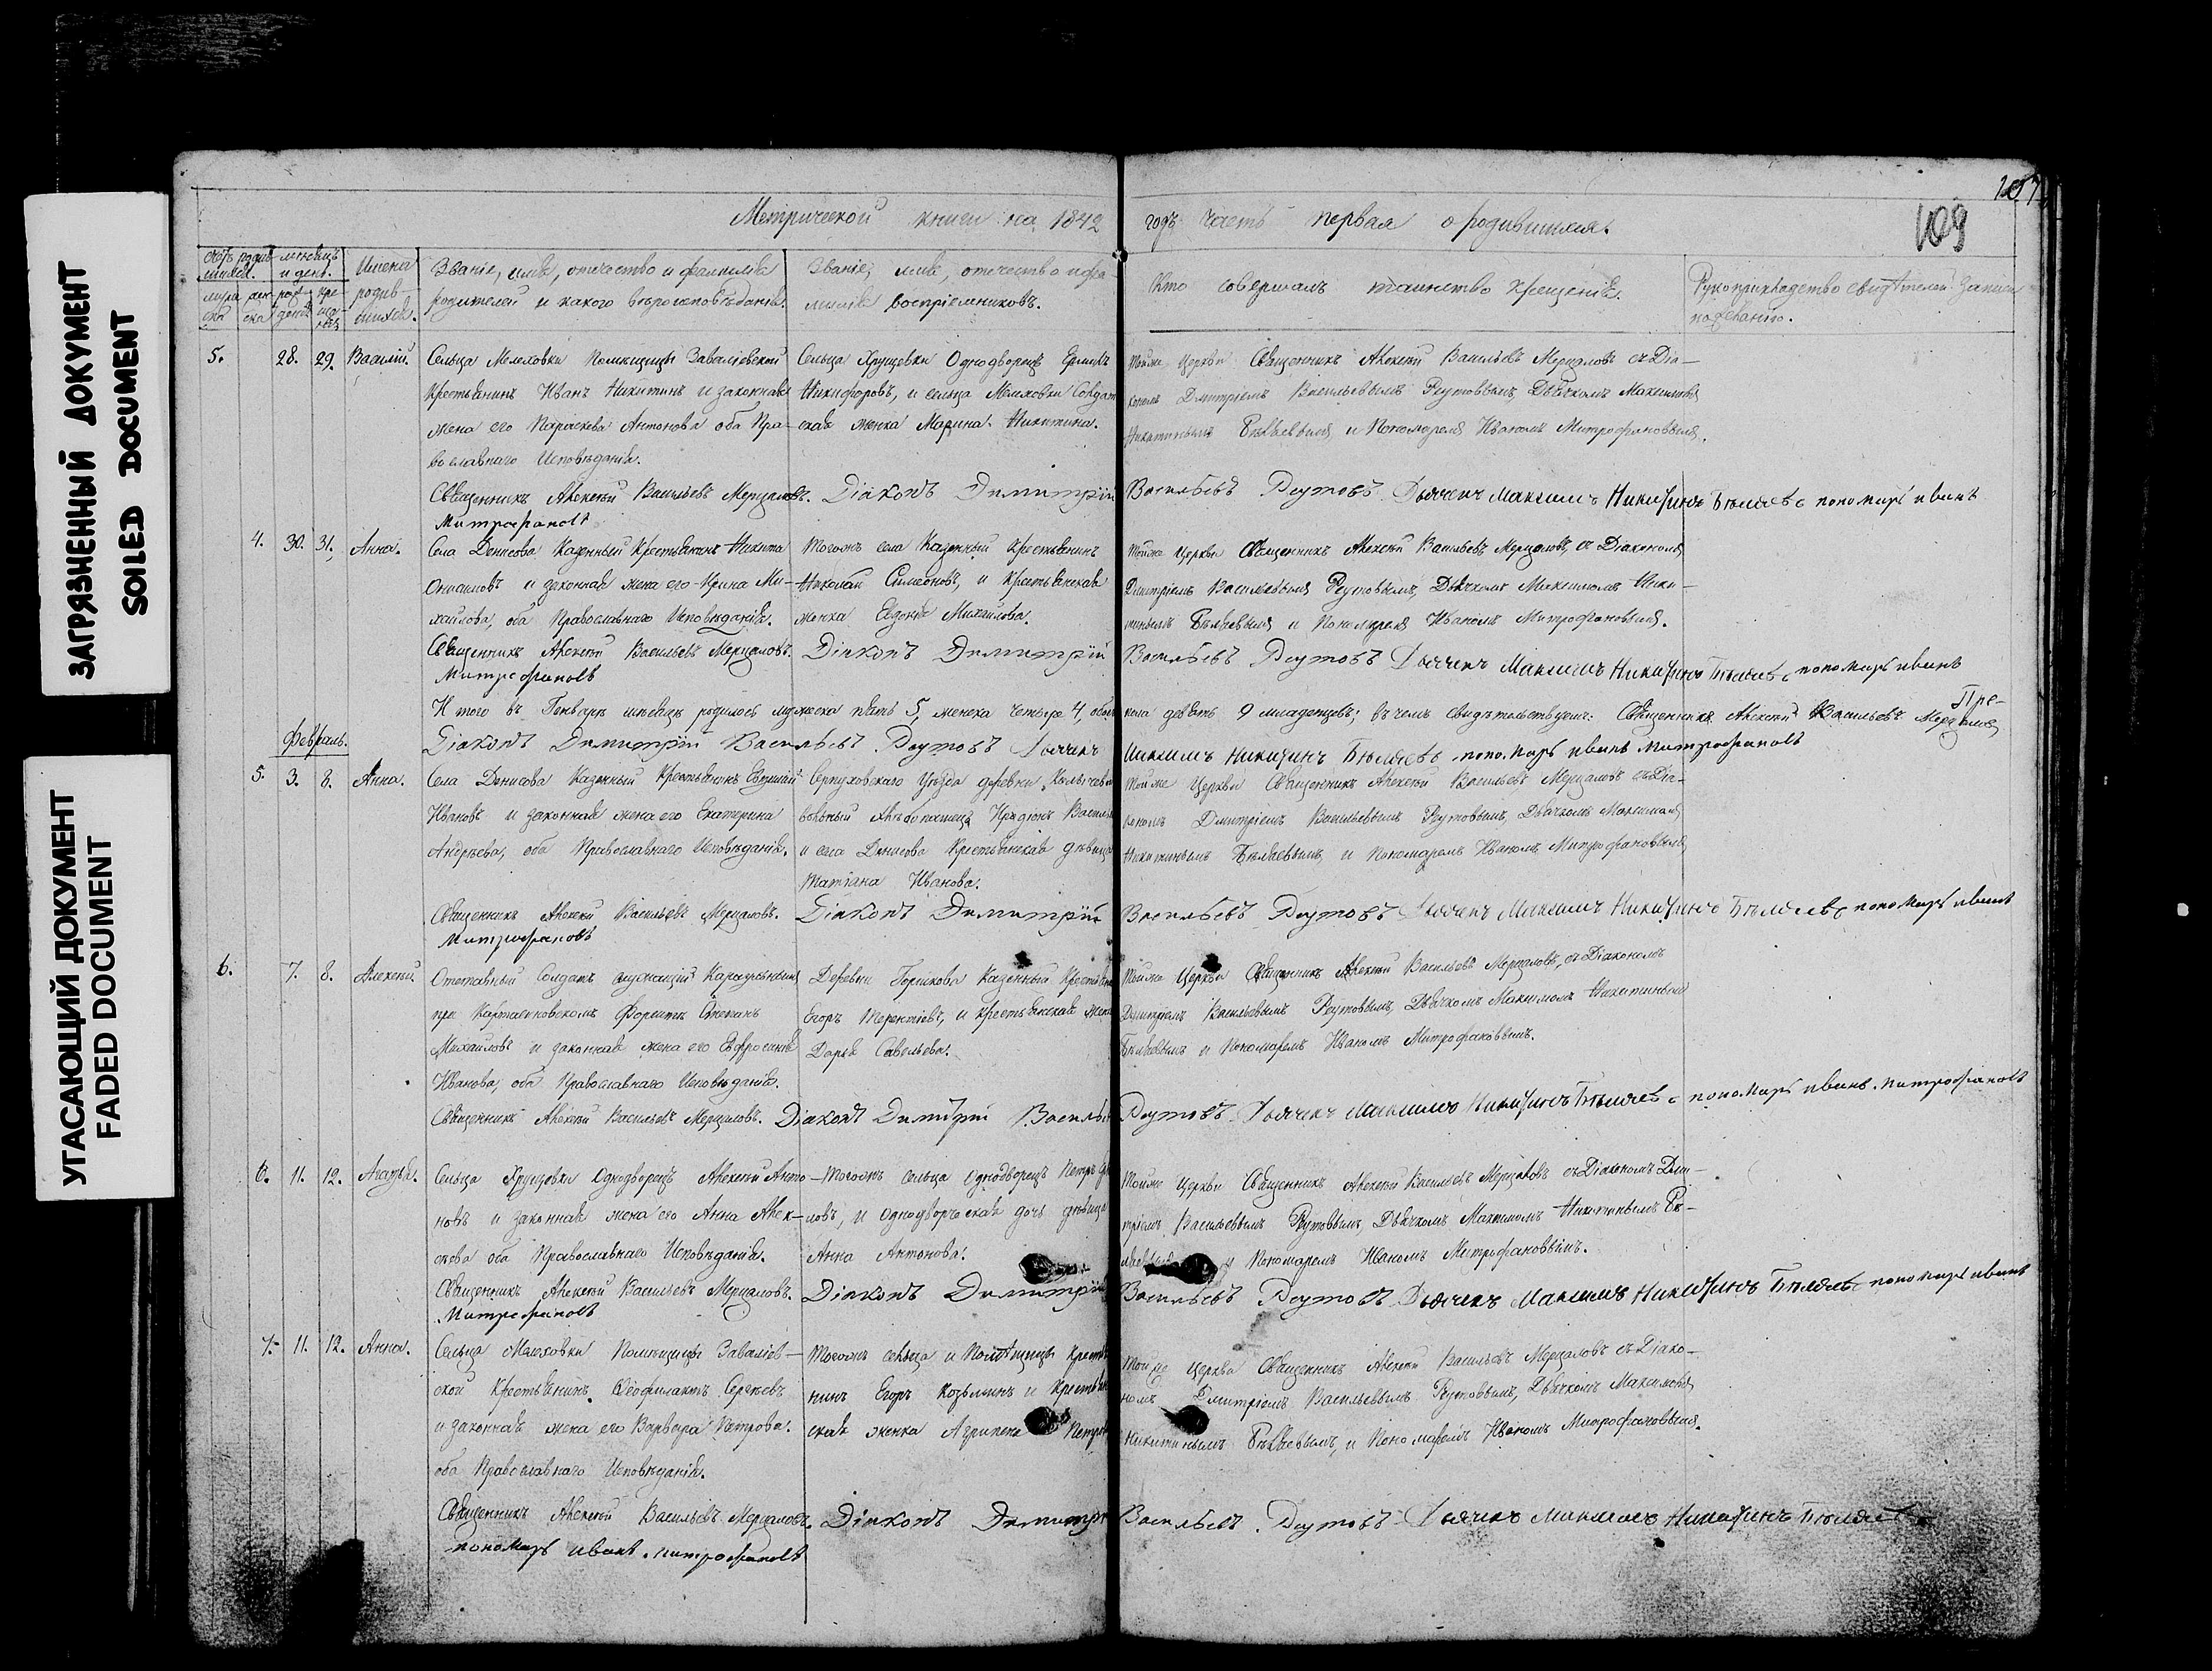 ЗАГРЯЗНЕННЫЙ ДОКУМЕНТ
SOILED DOCUMENT
УГАСАЮЩИЙ ДОКУМЕНТ
FADED DOCUMENT
107
109
Метрической книги на 1842 годъ часть первая о родившихся.
мѣсяцъ и день.
Имена родив-шихся.
Званіе, имя, отчество и фамилія родителей и какого вѣроисповѣданія.
Званіе, имя, отчество и фамилія воспріемниковъ.
Кто совершалъ таинство крещенія.
Рукоприкладство свидѣтелей записи по желанію.
5. 28. 29. Василій.
Сельца Мелеховки Помѣщицы Заваліевской
Крестьянинъ Иванъ Никитинъ и законная
жена его Параскева Антонова оба Пра-
вославнаго Исповѣданія.
Сельца Хрущевки Однодворецъ
Никифоровъ, и сельца Мелеховки Солдат
ская женка Марина Никитина.
тойже Церкви Священникъ Алексѣй Васильевъ Мерцаловъ съ Діа-
кономъ Дмитріемъ Васильевымъ Реутовымъ, Дьячкомъ Максимомъ
Никитинымъ Бѣляевымъ, и Пономаремъ Иваномъ Митрофановымъ.
Священникъ Алексѣй Васильевъ Мерцаловъ. Діаконъ Димитрій Васильевъ Реутовъ Дьячекъ Максимъ Никитинъ Бѣляевъ пономарь иванъ
Митрофановъ
4. 30. 31. Анна.
Села Денисова Казенный Крестьянинъ Никита
Онисимовъ и законная жена его Ирина Ми-
хайлова, оба Православнаго Исповѣданія.
Тогожъ села Казенный Крестьянинъ
Николай Симеоновъ, и Крестьянская
женка Евдокія Михайлова.
тойже Церкви Священникъ Алексѣй Васильевъ Мерцаловъ, съ Діакономъ
Дмитріемъ Васильевымъ Реутовымъ, Дьячкомъ Максимомъ Ники-
тинымъ Бѣляевымъ и Пономаремъ Иваномъ Митрофановымъ.
Священникъ Алексѣй Васильевъ Мерцаловъ. Діаконъ Димитрій Васильевъ Реутовъ Дьячекъ Максимъ Никитинъ Бѣляевъ пономарь иванъ
Митрофановъ
И того въ Генварѣ мѣсяцѣ родилось мужеска пять 5, женска четыре 4, обоего пола девять 9 младенцевъ; въ чемъ свидѣтельствуемъ: Священникъ Алексѣй Васильевъ Мерцаловъ
Февраль.
Діаконъ Димитрій Васильевъ Реутовъ Дьячекъ Максимъ Никитинъ Бѣляевъ пономарь иванъ митрофановъ
5. 3. 8. Анна.
Села Денисова Казенный Крестьянинъ
Ивановъ и законная жена его Екатерина
Андреева, оба Православнаго Исповѣданія.
Серпуховскаго Уѣзда деревни
вольный хлѣбопашецъ
и села Денисова Крестьянская дѣвица
Татіана Иванова.
тойже Церкви Священникъ Алексѣй Васильевъ Мерцаловъ съ Діа-
кономъ Дмитріемъ Васильевымъ Реутовымъ, Дьячкомъ Максимомъ
Никитинымъ Бѣляевымъ, и Пономаремъ Иваномъ Митрофановымъ,
Священникъ Алексѣй Васильевъ Мерцаловъ. Діаконъ Димитрій Васильевъ Реутовъ Дьячекъ Максимъ Никитинъ Бѣляевъ пономарь иванъ
Митрофановъ
6. 7. 8. Алексѣй
Отставный Солдатъ служащій
при форштѣ Степанъ
Михайловъ и законная жена его Евфросинія
Иванова, оба Православнаго Исповѣданія.
Деревни Казенный Крестьянинъ
Егоръ Терентіевъ, и Крестьянская
Дарья Савельева.
тойже Церкви Священникъ Алексѣй Васильевъ Мерцаловъ, съ Діакономъ
Дмитріемъ Васильевымъ Реутовымъ, Дьячкомъ Максимомъ Никитинымъ
Бѣляевымъ и Пономаремъ Иваномъ Митрофановымъ.
Священникъ Алексѣй Васильевъ Мерцаловъ. Діаконъ Димитрій Васильевъ Реутовъ Дьячекъ Максимъ Никитинъ Бѣляевъ пономарь иванъ митрофановъ
6. 11. 12. Агафья.
Сельца Хрущевки Однодворецъ Алексѣй Анто-
новъ и законная жена его Анна Алек-
сѣева оба Православнаго Исповѣданія.
Тогожъ сельца Однодворецъ Петръ
ловъ, и Однодворческая дочь дѣвица
Анна Антонова.
тойже Церкви Священникъ Алексѣй Васильевъ Мерцаловъ съ Діакономъ Дми-
тріемъ Васильевымъ Реутовымъ, Дьячкомъ Максимомъ Никитинымъ Бѣ-
ляевымъ и Пономаремъ Иваномъ Митрофановымъ.
Священникъ Алексѣй Васильевъ Мерцаловъ. Діаконъ Димитрій Васильевъ Реутовъ Дьячекъ Максимъ Никитинъ Бѣляевъ пономарь иванъ
Митрофановъ
7. 11. 12. Анна.
Сельца Мелеховки Помѣщицы Заваліев-
ской Крестьянинъ Ѳеофилактъ Сергѣевъ
и законная жена его Варвара Петрова.
оба Православнаго Исповѣданія.
Тогожъ сельца и Помѣщицы Крестья
нинъ Егоръ Козьминъ и Крестьян
ская женка Агрипена Петрова
тойже Церкви Священникъ Алексѣй Васильевъ Мерцаловъ съ Діако-
номъ Дмитріемъ Васильевымъ Реутовымъ, Дьячкомъ Максимомъ
Никитинымъ Бѣляевымъ, и Пономаремъ Иваномъ Митрофановымъ.
Священникъ Алексѣй Васильевъ Мерцаловъ. Діаконъ Димитрій Васильевъ Реутовъ Дьячекъ Максимъ Никитинъ Бѣляевъ
пономарь иванъ митрофановъ